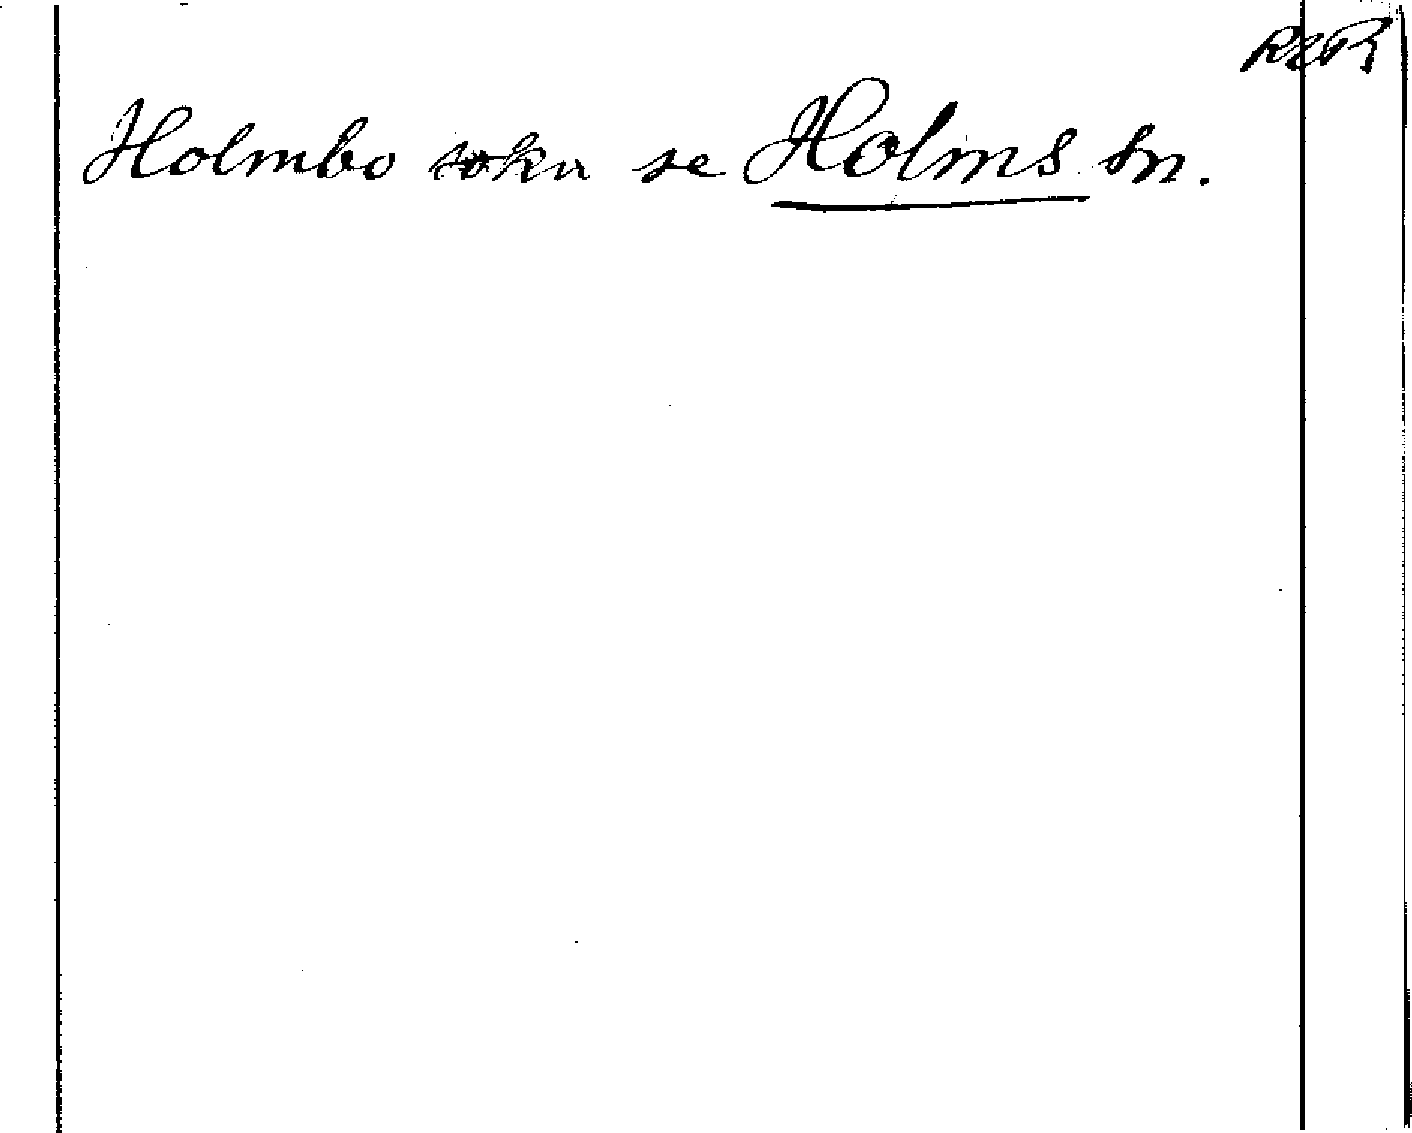 Holmbo sokn se Holms sn.